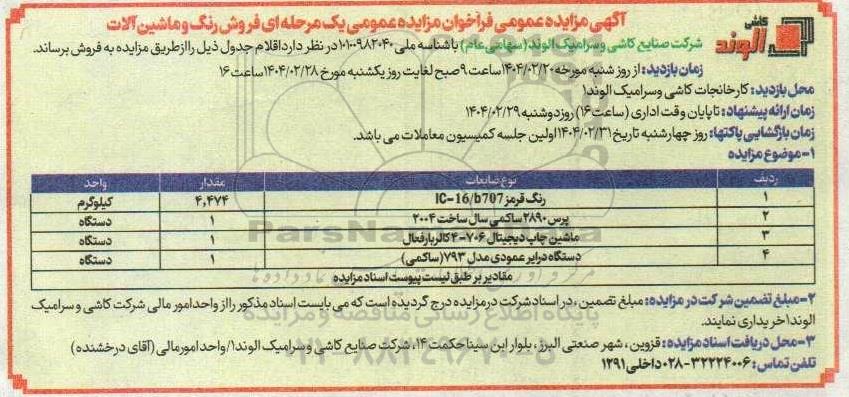 کاشی
الوند
آگهی مزایده عمومی فراخوان مزایده عمومی یک مرحله ای فروش رنگ و ماشین آلات
شرکت صنایع کاشی وسرامیک الوند (سهامی عام) با شناسه ملی ۱۰۱۰۰۹۸۲۰۴۰ در نظر دارد اقلام جدول ذیل را از طریق مزایده به فروش برساند.
زمان بازدید: از روز شنبه مورخه ۱۴۰۴/۰۲/۲۰ ساعت ۹ صبح لغایت روز یکشنبه مورخ ۱۴۰۴/۰۲/۲۸ ساعت ۱۶
محل بازدید: کارخانجات کاشی وسرامیک الوند۱
زمان ارائه پیشنهاد: تا پایان وقت اداری (ساعت ۱۶) روز دوشنبه ۱۴۰۴/۰۲/۲۹
زمان بازگشایی پاکتها: روز چهارشنبه تاریخ ۱۴۰۴/۰۲/۳۱ اولین جلسه کمیسیون معاملات می باشد.
۱-موضوع مزایده
ردیف نوع ضایعات مقدار واحد
۱ رنگ قرمز IC-16/b707 ۴,۴۷۴ کیلوگرم
۲ پرس ۲۸۹۰ ساکمی سال ساخت ۲۰۰۴ ۱ دستگاه
۳ ماشین چاپ دیجیتال ۷۰۶-۴ کالربارفعال ۱ دستگاه
۴ دستگاه درایر عمودی مدل ۷۹۳ (ساکمی) ۱ دستگاه
مقادیر بر طبق لیست پیوست اسناد مزایده
۲-مبلغ تضمین شرکت در مزایده: مبلغ تضمین، در اسناد شرکت در مزایده درج گردیده است که می بایست اسناد مذکور را از واحد امور مالی شرکت کاشی و سرامیک
الوند۱ خریداری نمایند.
۳-محل دریافت اسناد مزایده: قزوین، شهر صنعتی البرز، بلوار ابن سینا حکمت ۱۴، شرکت صنایع کاشی وسرامیک الوند۱/ واحد امور مالی (آقای درخشنده)
تلفن تماس: ۳۲۲۲۴۰۰۶-۰۲۸ داخلی ۱۲۹۱
ParsNamadData
پایگاه اطلاع رسانی مناقصه و مزایده